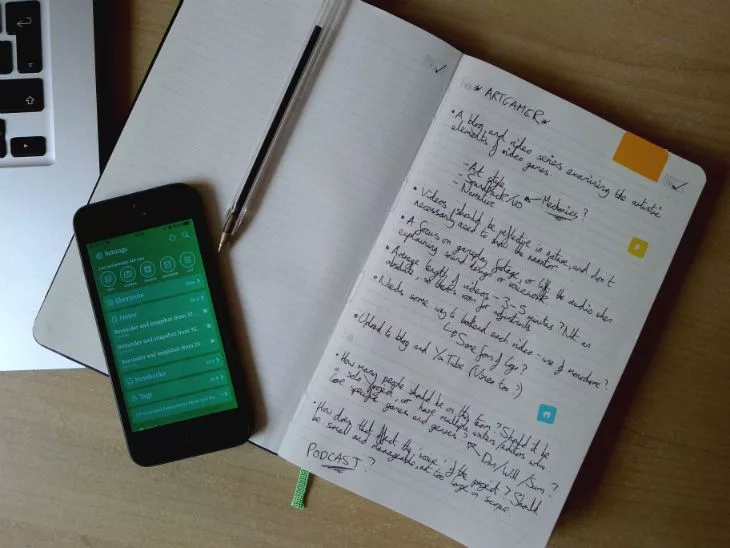 Settings
Shortcuts
Notes
Reminder and snapshot from 31...
Reminder and snapshot from 32...
Reminder and snapshot from 22...
Notebooks
Tags
*ARTGAMER*
• A blog and video series examining the artistic
elements of video games
- Art style
- Soundtrack
- Narrative
Mechanics?
• Videos should be reflective in nature, and don't
necessarily need to show the narrator.
• A focus on gameplay footage, or the audio when
explaining sound design or
• Average length of videos - 3-5 minutes? Not an
absolute, so there's room for
• Needs some way to bookend each video - use of monochrome?
↳ Some form of logo?
• Upload to blog and YouTube (Vimeo too?)
• How many people should be on this team? Should it be
a solo project, or have multiple writers/editors who
love specific games and genres? Dan/Will/Sam?
• How does that affect the 'voice' of the project? Should
be small and manageable, not too large in scope.
PODCAST?